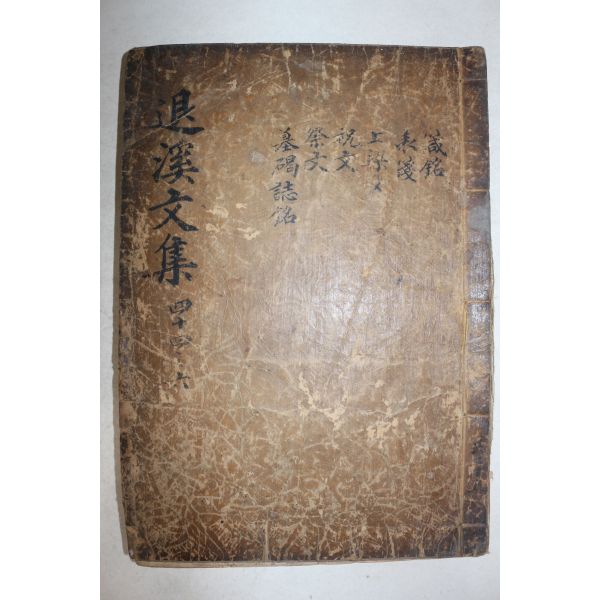 退溪文集 四十四之六
箴銘
表箋
上樑文
祝文
祭文
墓碣誌銘